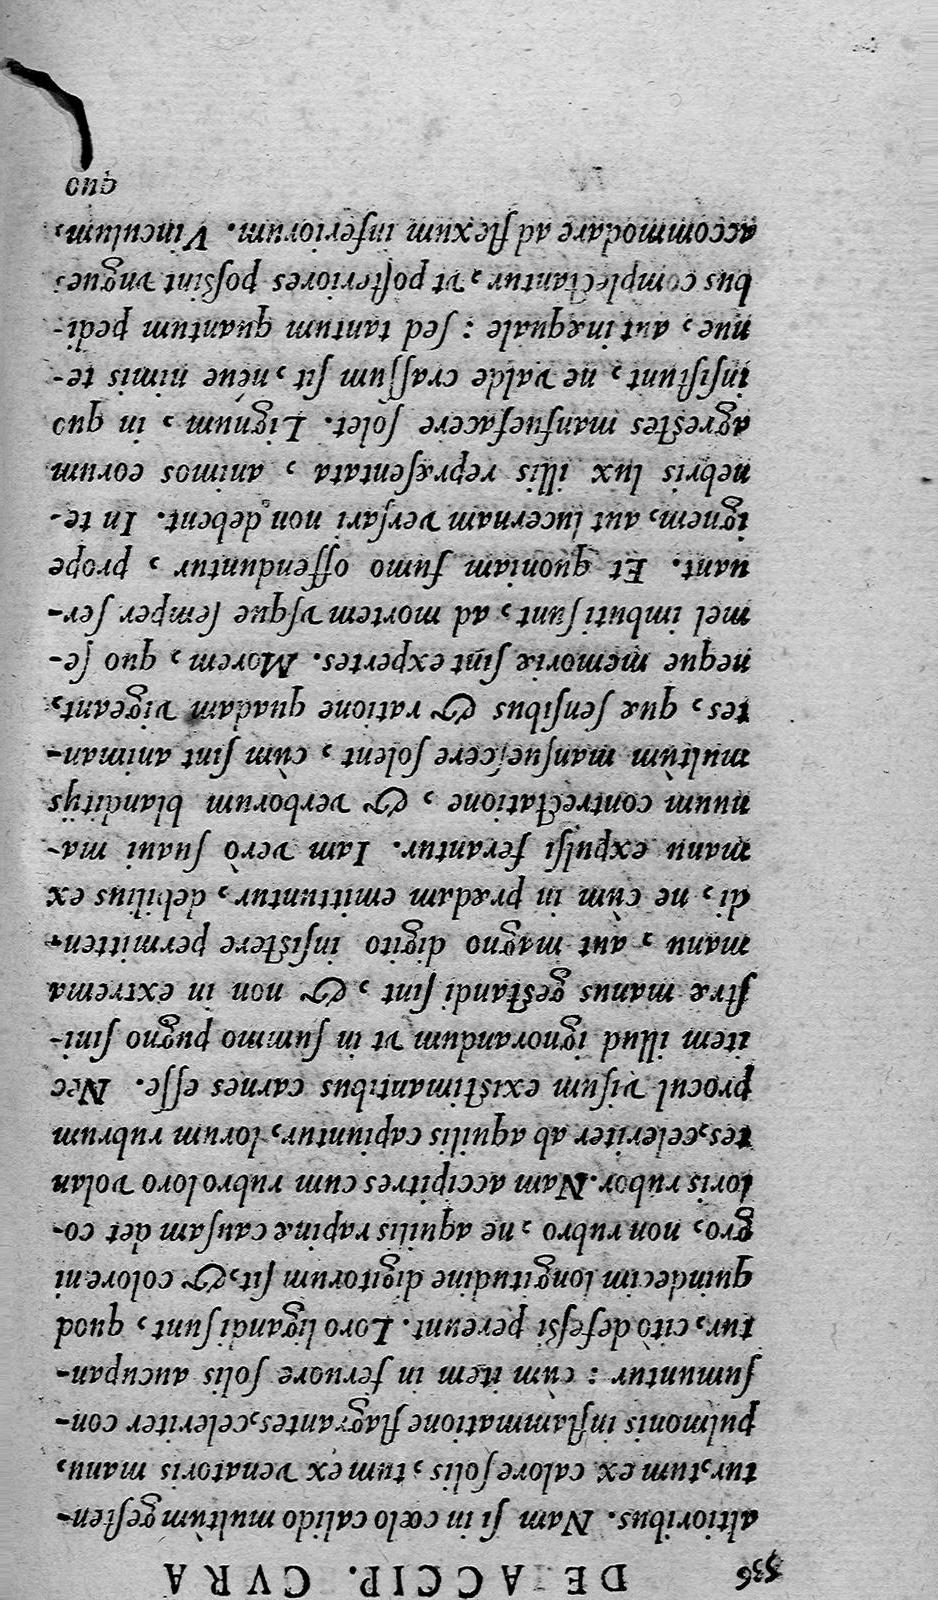 336 DE ACCIP. CVRA
altioribus. Nam si in cœlo calido multùm gesten-
tur, tum ex calore solis, tum ex venatoris manu,
pulmonis inflammatione flagrantes, celeriter con-
sumuntur : cùm item in feruore solis aucupan-
tur, citò defeßi pereunt. Loro ligandi sunt, quod
quindecim longitudine digitorum sit, & colore ni
gro, non rubro, ne aquilis rapinæ causam det co-
loris rubor. Nam accipitres cum rubro loro volan
tes, celeriter ab aquilis capiuntur, lorum rubrum
procul visum existimantibus carnes esse. Nec
item illud ignorandum vt in summo pugno sini-
stræ manus gestandi sint, & non in extrema
manu, aut magno digito insistere permitten-
di, ne cùm in prædam emittuntur, debilius ex
manu expulsi ferantur. Iam verò suaui ma-
nuum contrectatione, & verborum blanditijs
multùm mansuescere solent, cùm sint animan-
tes, quæ sensibus & ratione quadam vigeant,
neque memoriæ sint expertes. Morem, quo se-
mel imbuti sunt, ad mortem vsque semper ser-
uant. Et quoniam fumo offenduntur, prope
ignem, aut lucernam versari non debent. In te-
nebris lux illis repræsentata, animos eorum
agrestes mansuefacere solet. Lignum, in quo
insistunt, ne valde crassum sit, néue nimis te-
nue, aut inæquale : sed tantum quantum pedi-
bus complectantur, vt posteriores poßint vngues
accommodare ad flexum inferiorum. Vinculum,
quo